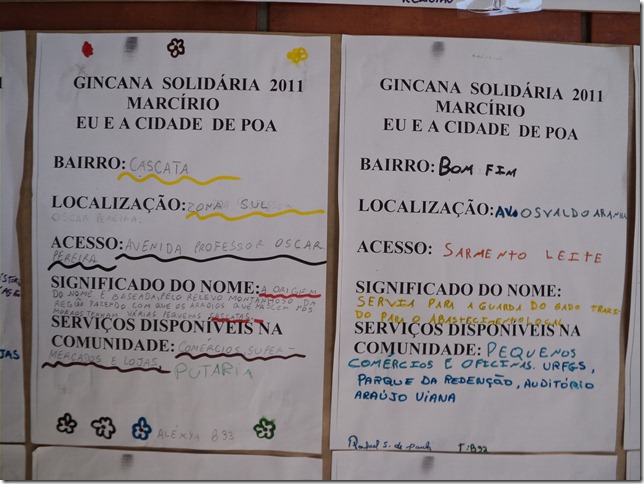 GINCANA SOLIDÁRIA 2011
MARCÍRIO
EU E A CIDADE DE POA
BAIRRO: CASCATA
LOCALIZAÇÃO: ZONA SUL
OSCAR PEREIRA.
ACESSO: AVENIDA PROFESSOR OSCAR
PEREIRA
SIGNIFICADO DO NOME: A ORIGEM
DO NOME É BASEADA PELO RELEVO MONTANHOSO DA
REGIÃO FAZENDO COM QUE OS ARROIOS QUE NASCEM NOS
MORROS TENHAM VÁRIAS CASCATAS.
SERVIÇOS DISPONÍVEIS NA
COMUNIDADE: COMÉRCIOS SUPER-
MERCADOS E LOJAS,
PUTARIA
ALÉXYA B93
GINCANA SOLIDÁRIA 2011
MARCÍRIO
EU E A CIDADE DE POA
BAIRRO: BOM FIM
LOCALIZAÇÃO: AV. OSVALDO ARANHA
ACESSO: SARMENTO LEITE
SIGNIFICADO DO NOME:
SERVIA PARA A GUARDA DO GADO TRAZI
DO PARA O ABASTECIMENTO LOCAL
SERVIÇOS DISPONÍVEIS NA
COMUNIDADE: PEQUENOS
COMÉRCIOS E OFICINAS. URFGS,
PARQUE DA REDENÇÃO, AUDITÓRIO
ARAÚJO VIANA
Rafael S. de Paula T: B92